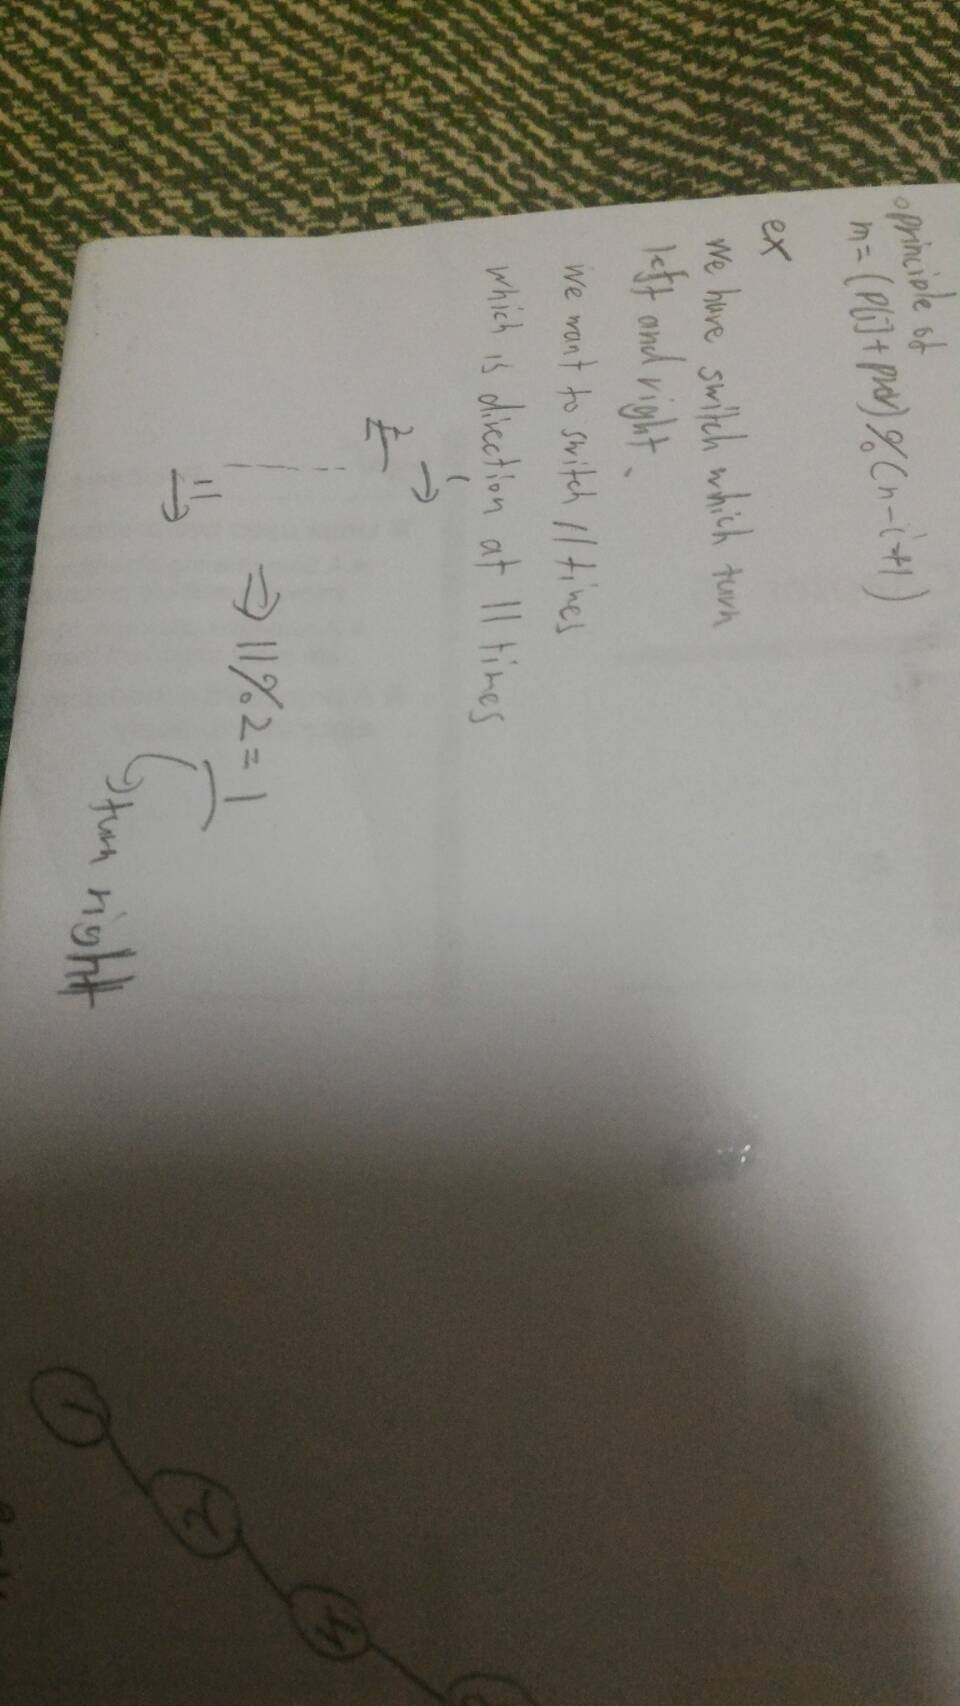 principle of
m = (P[i] + prev) % (n - i + 1)
ex
We have switch which turn
left and right.
we want to switch 11 times
which is direction at 11 times
1 →
2 ←
11 → ⇒ 11 % 2 = 1
turn right
1 2 4